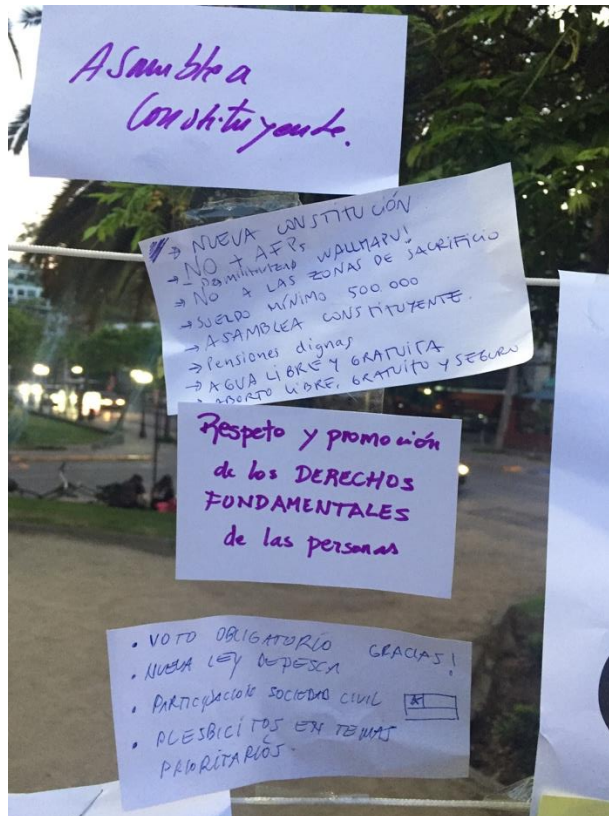 Asamblea
Constituyente.
→ NUEVA CONSTITUCIÓN
NO + AFPs
→ Desmilitarizad WALLMAPU!
→ NO A LAS ZONAS DE SACRIFICIO
→ SUELDO MÍNIMO 500.000
→ ASAMBLEA CONSTITUYENTE.
→ Pensiones dignas
→ AGUA LIBRE Y GRATUITA
ABORTO LIBRE, GRATUITO Y SEGURO
Respeto y promoción
de los DERECHOS
FUNDAMENTALES
de las personas
• VOTO OBLIGATORIO GRACIAS!
• NUEVA LEY DE PESCA
• PARTICIPACIÓN SOCIEDAD CIVIL
• PLESBICITOS EN TEMAS
PRIORITARIOS.